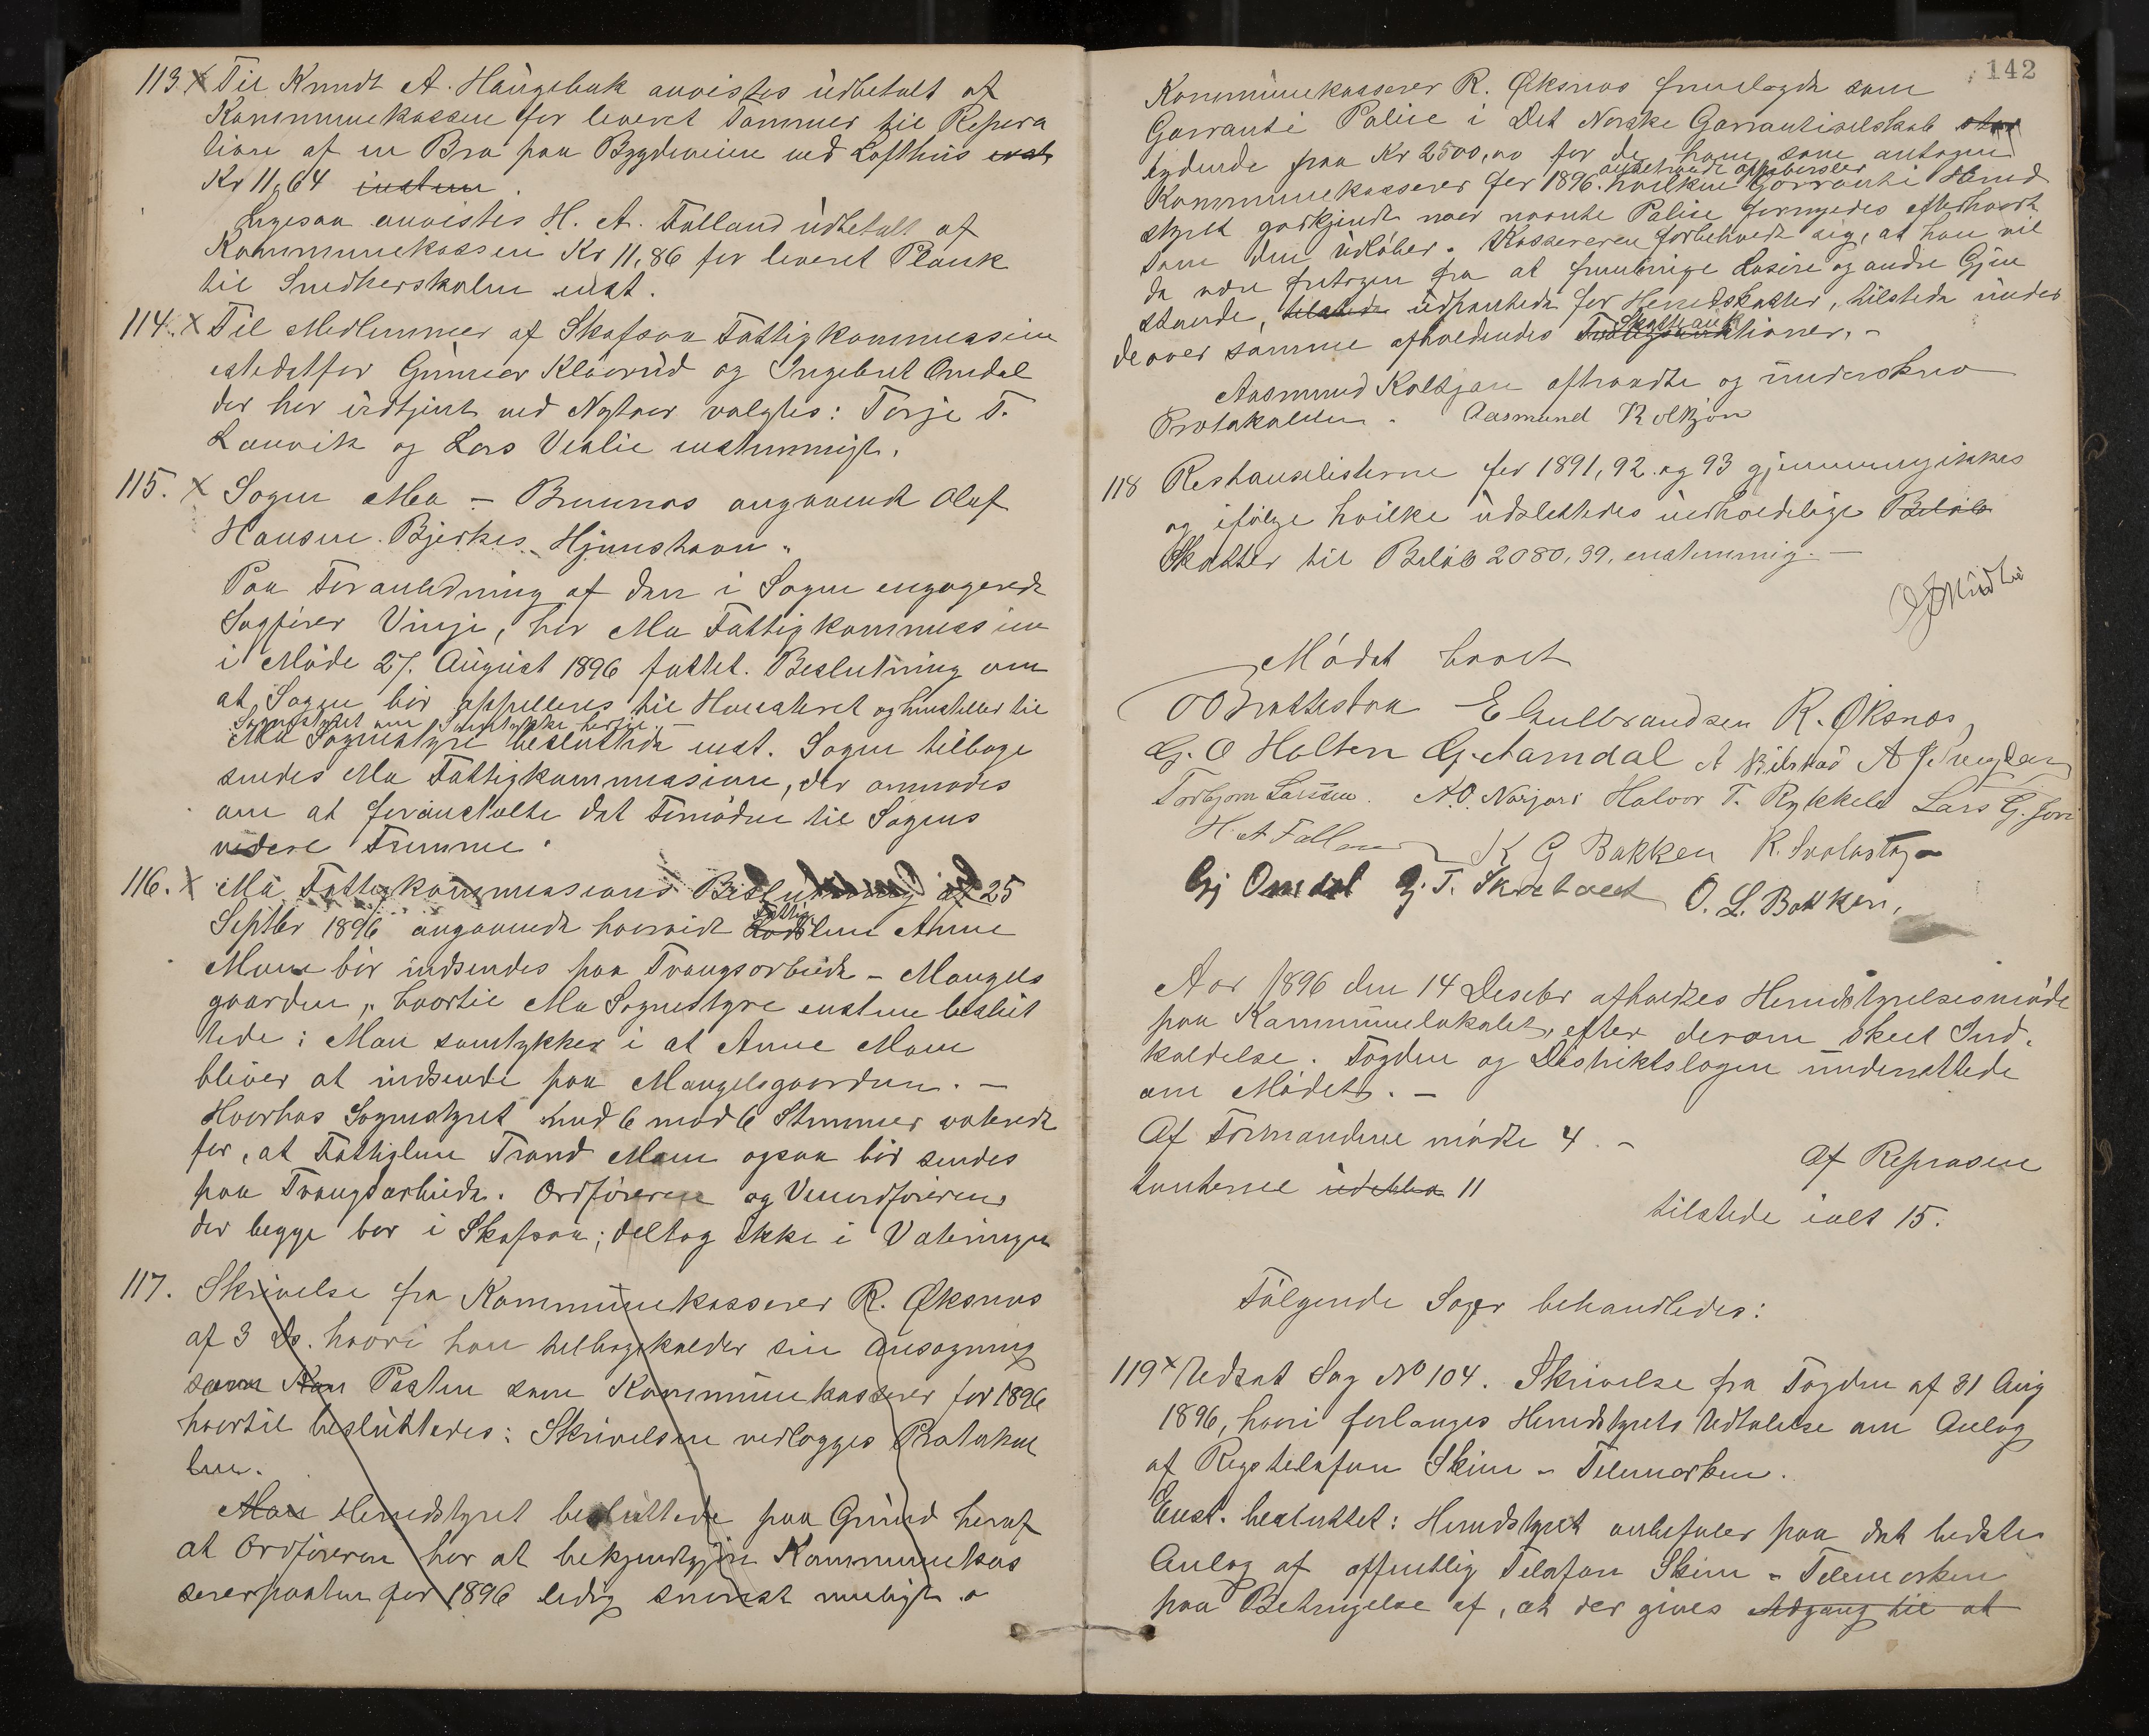 113 x Til Knudt A. Haugebak anvistes udbetalt af
Kommunekassen for leveret Tømmer til Repera
tion af en Bro paa Bygdeveien ved Lofthus enst
Kr 11,64 enstem.
Ligesaa anvistes H. A. Falland udbetalt af
Kommunekassen Kr 11,86 for leveret Plank
til Snedkerskolen enst.
114. x Til Medlemmer af Skafsaa Fattigkommission
istedetfor Gunner Kløvrud og Ingebret Omdal
der har udtjent ved Nytaar valgtes: Terje T.
Lauvik og Lars Vealie enstemmigt.
115. x Sagen Mo - Brunnæs angaaende Oluf
Hansen Bjerkes Hjemstavn.
Paa Foranledning af den i Sagen engagerede
Sagfører Vinje, har Mo Fattigkommission
i Møde 27. August 1896 fattet Beslutning om
at Sagen bør appelleres til Høiesteret og henstiller til
Sognestyret om Samtykke hertil. -
Mo Sognestyre besluttede enst. Sagen tilbage
sendes Mo Fattigkommission, der anmodes
om at foranstalte det Fornødne til Sagens
videre Fremme.
116. x Mo Fattigkommissions Beslutning af 25
Septbr 1896 angaaende hvorvidt Fattig
lem Anne
Moen bør indsendes paa Tvangsarbeide - Mangels
gaarden, hvortil Mo Sognestyre enstem beslut
tede: Man samtykker i at Anne Moen
bliver at indsende paa Mangelsgaarden. -
Hvorhos Sognestyret med 6 mod 6 Stemmer voterede
for, at Fattiglem Trond Moen ogsaa bør sendes
paa Tvangsarbeide. Ordføreren og Viceordføreren
der begge bor i Skafsaa; deltog ikke i Voteringen
117. Skrivelse fra Kommunekasserer R. Øksnæs
af 3 Ds. hvori han tilbagekalder sin Ansøgning
som Kom Posten som Kommunekasserer for 1896
hvortil besluttedes: Skrivelsen vedlægges Protokol
len.
Man Herredstyret besluttede paa Grund heraf
at Ordføreren har at bekjendtgjøre Kommunekas
sererposten for 1896 ledig snarest muligt.
142
Kommunekasserer R. Øksnæs fremlagde som
Garranti Police i Det Norske Garrantiselskab
lydende paa Kr 2500,00 for de ham som antagen
angaaende Oppebørsler
Kommunekasserer for 1896. hvilken Garranti Herred
styret godkjendte naar nævnte Police fornyedes efterhvert
som den udløber. Kassereren forbeholdt sig, at han vil
da være fritagen fra at frembringe Løsøre og andre Gjen
stande, tilstede udpantede for Herredskatter, tilstede under
Skatteauk
de over samme afholdendes Tvangsauktioner. -
Aasmund Kolkjøn aftraadte og underskrev
Protokollen. Aasmund Kolkjøn
118 Restanselisterne for 1891, 92. og 93 gjennemgikkes
og ifølge hvilke udslettedes uerholdelige Beløb
Skatter til Beløb 2080,39, enstemmig. -
Mødet hævet
O O Brattestaa E Gulbrandsen R. Øksnæs
G. O Holten G. Aamdal A
Torbjørn Larssen. A. O. Norjori Halvor T. Rykkeli Lars G. Jore
H. A Falland K G Bakken R. Svalastog
Gj Omdal G. T. Skrebolet O. L. Bakken,
Aar 1896 den 14 Desebr afholdtes Herredstyrelsesmøde
paa Kommunelokalet, efter derom skeet Ind-
kaldelse. Fogden og Distriktslægen underrettede
om Mødet. -
Af Formændene mødte 4. -
Af Repræsen
tanterne udebleo 11
tilstede ialt 15.
Følgende Sager behandledes:
119 x Udsat Sag No 104. Skrivelse fra Fogden af 31 Aug
1896, hvori forlanges Herredstyrets Udtalelse om Anlæg
af Rigstelefon Skien - Telemarken.
Enst. besluttet: Herredstyret anbefaler paa det bedste
Anlæg af offentlig Telefon Skien - Telemarken
paa Betingelse af, at der gives Adgang til at